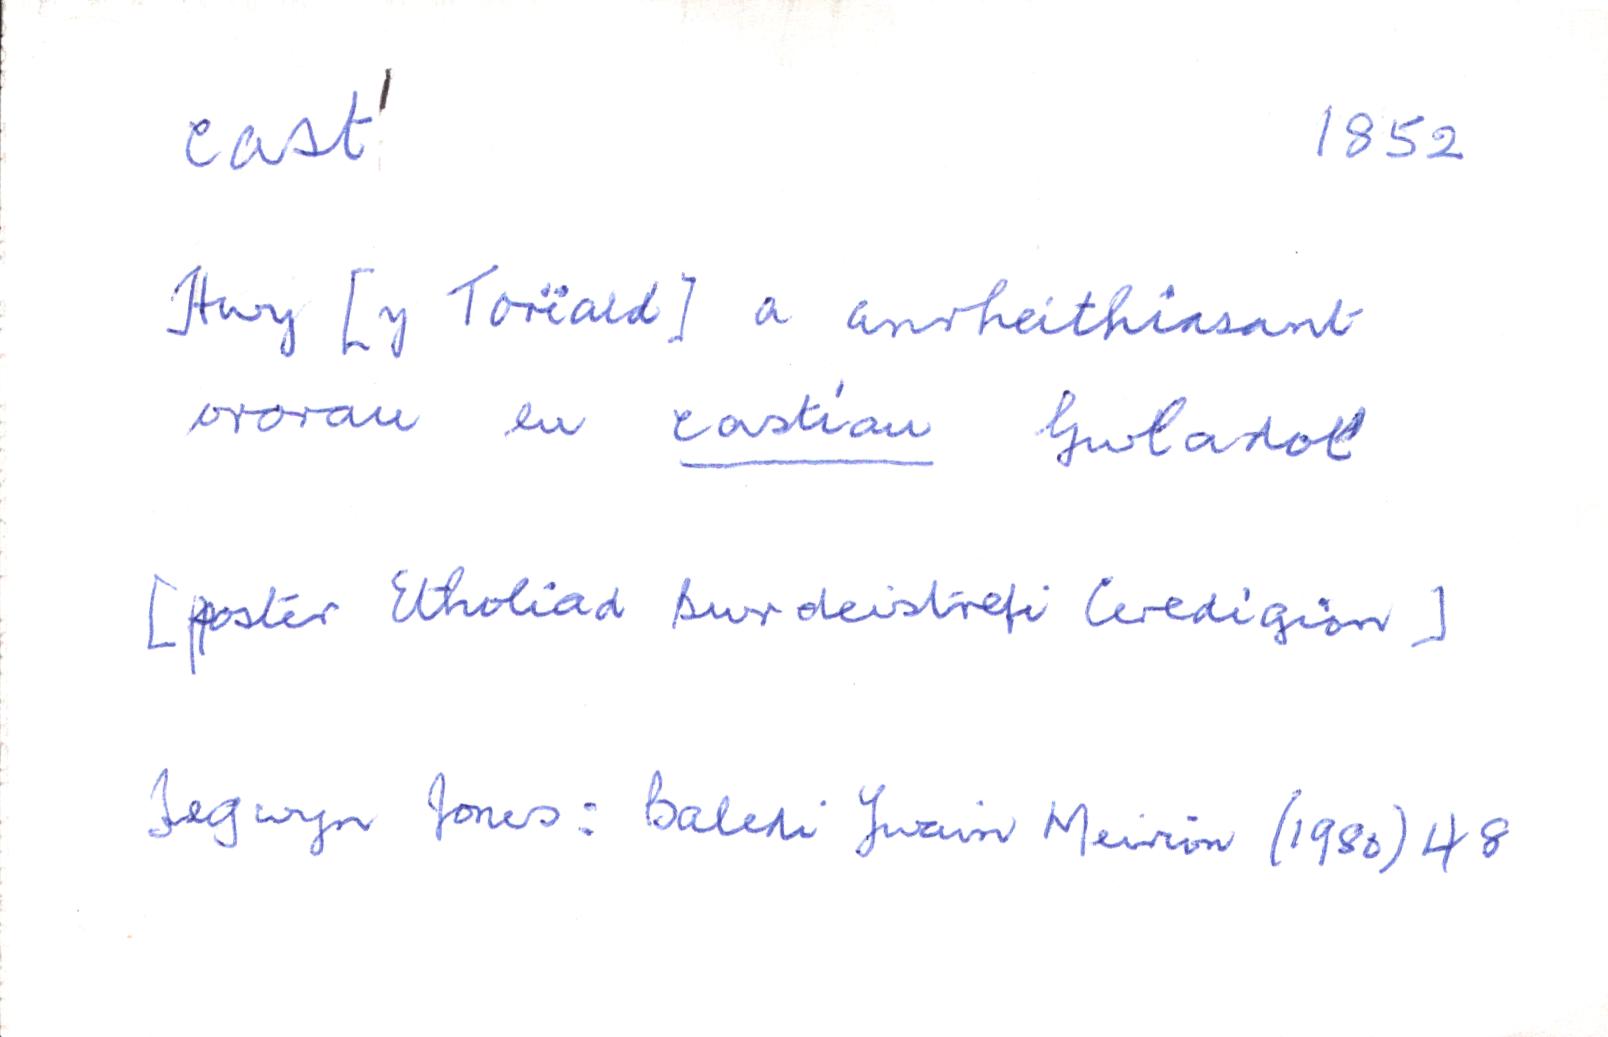 cast¹ 1852
Hwy [y Torïaid] a anrheithiasant
ororau eu castiau Gwladol
[poster Etholiad Bwrdeistrefi Ceredigion]
Tegwyn Jones: Baledi Ywain Meirion (1980) 48